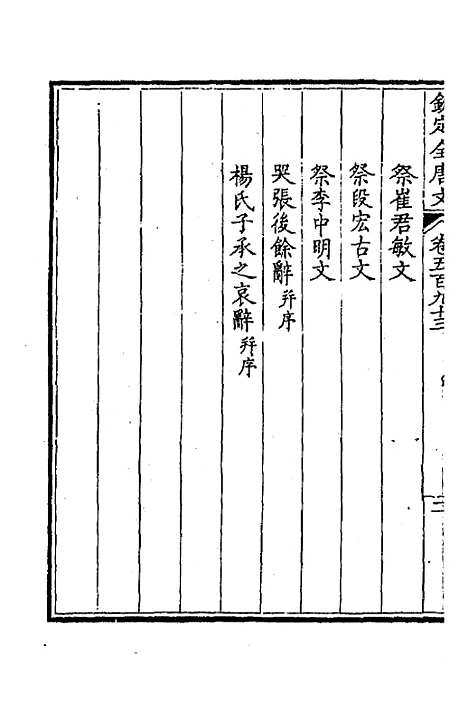 欽定全唐文 卷五百九十三 二
祭崔君敏文
祭段宏古文
祭李中明文
哭張後餘辭 并序
楊氏子承之哀辭 并序